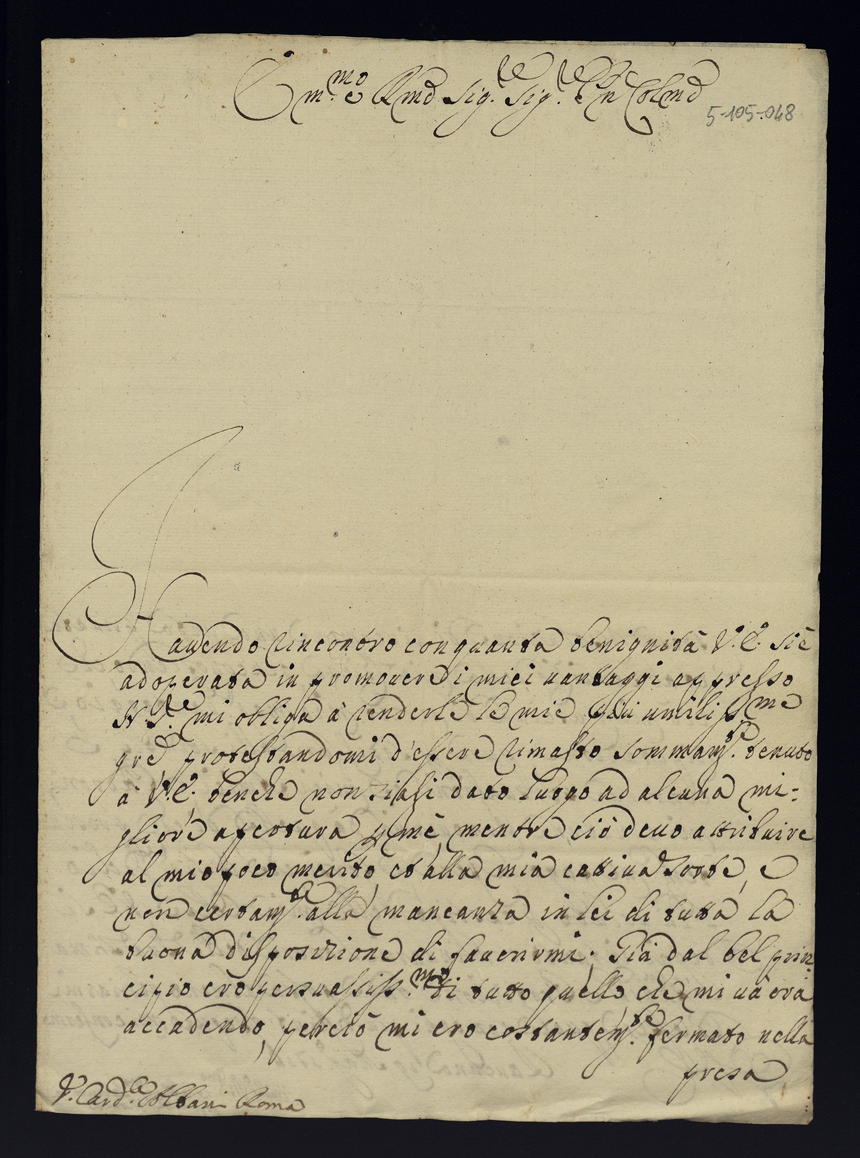 Em.mo e Rmo Sig.re Sig.re e Pn Colmo
5-105-048
Hauendo rincontro con quanta benignità V.E. si è
adoperata in promouere di miei uantaggi appresso
N. S.re mi obliga à renderle le mie più umiliss.me
gre protestandomi d'essere rimasto sommam.te tenuto
à V.E. benche non siasi dato luogo ad alcuna mi=
gliore apertura p mè, mentre ciò deuo attribuire
al mio poco merito, et alla mia cattiua sorte, e
non certam.te alla mancanza in lei di tutta la
buona disposizione di fauorirmi; Già dal bel prin
cipio ero persuasiss.mo di tutto quello che mi ua ora
accadendo, perciò mi ero costantem.te fermato nella
presa
S.r Card.le Albani Roma